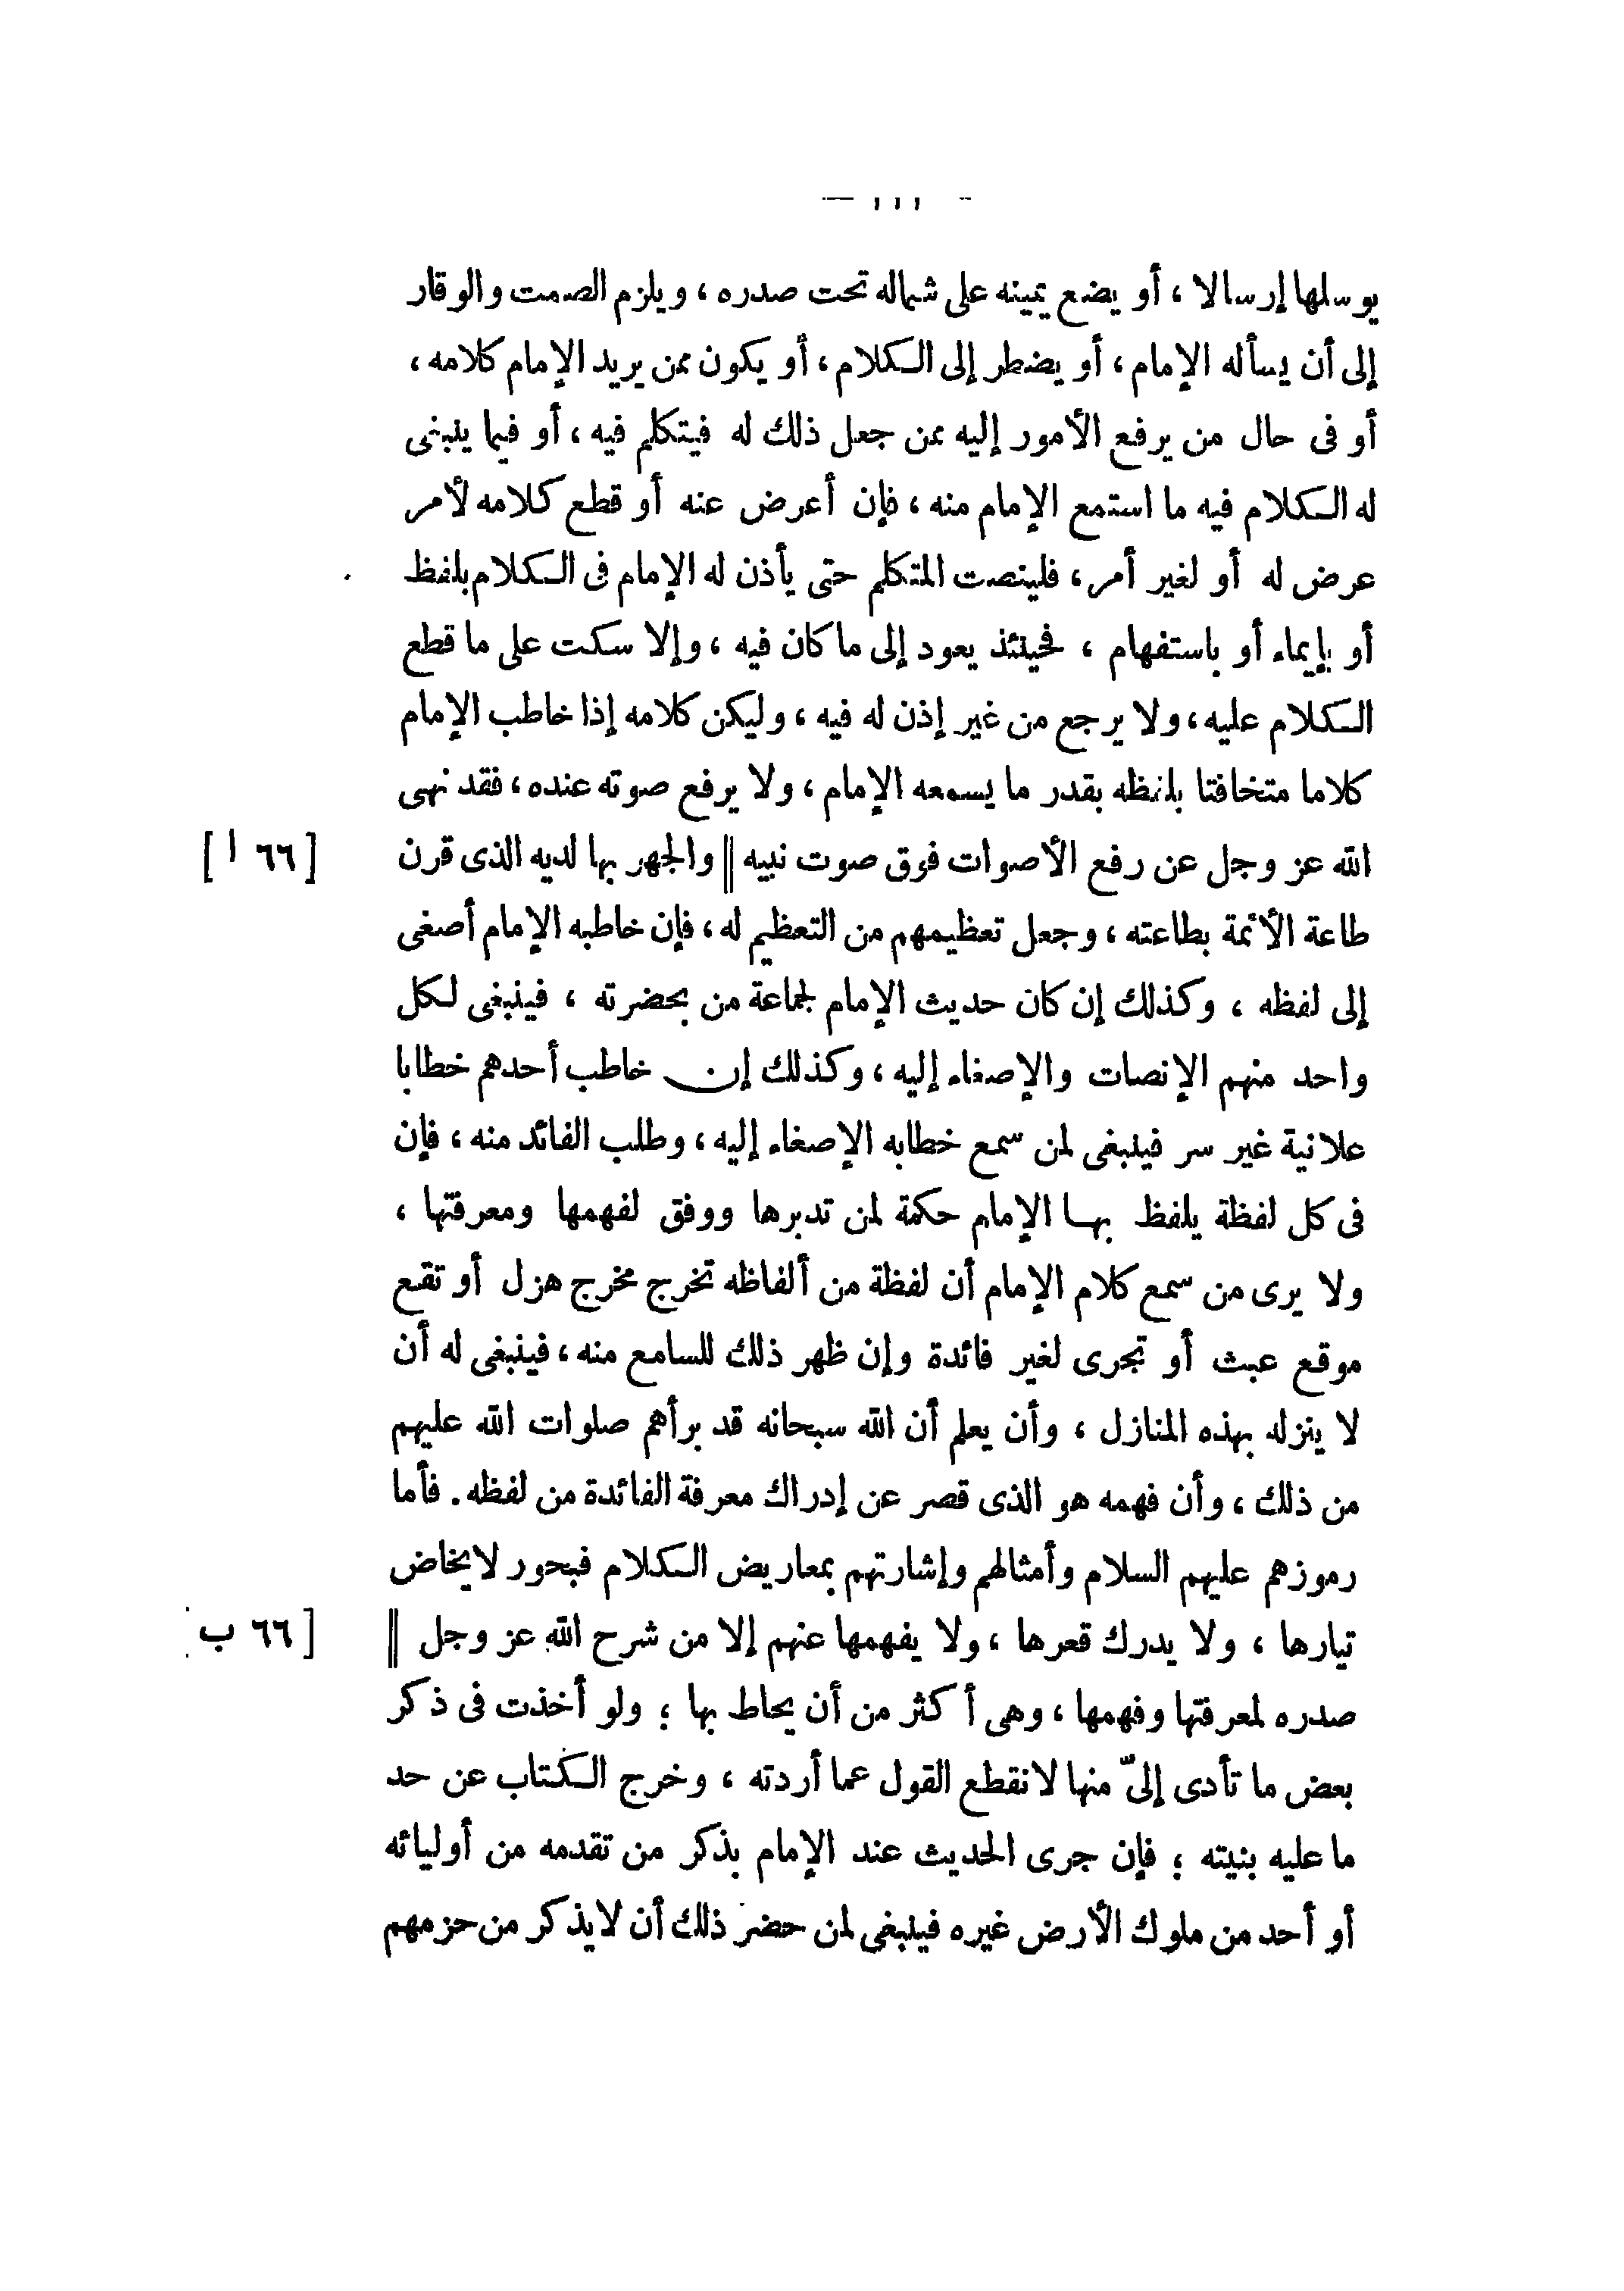 — ١١١ —
يرسلها إرسالا ، أو يضع يمينه على شماله تحت صدره ، ويلزم الصمت والوقار
إلى أن يسأله الإمام ، أو يضطر إلى الكلام ، أو يكون ممن يريد الإمام كلامه ،
أو فى حال من يرفع الأمور إليه ممن جعل ذلك له فيتكلم فيه ، أو فيما ينبغى
له الكلام فيه ما استمع الإمام منه ، فإن أعرض عنه أو قطع كلامه لأمر
عرض له أو لغير أمر ، فلينصت المتكلم حتى يأذن له الإمام فى الكلام بلفظ
أو بإيماء أو باستفهام ، فحينئذ يعود إلى ما كان فيه ، وإلا سكت على ما قطع
الكلام عليه ، ولا يرجع من غير إذن له فيه ، وليكن كلامه إذا خاطب الإمام
كلاما متخافتا بلفظه بقدر ما يسمعه الإمام ، ولا يرفع صوته عنده ، فقد نهى
الله عز وجل عن رفع الأصوات فوق صوت نبيه || والجهر بها لديه الذى قرن [ ٦٦ ا ]
طاعة الأئمة بطاعته ، وجعل تعظيمهم من التعظيم له ، فإن خاطبه الإمام أصغى
إلى لفظه ، وكذلك إن كان حديث الإمام لجماعة من بحضرته ، فينبغى لكل
واحد منهم الإنصات والإصغاء إليه ، وكذلك إن خاطب أحدهم خطابا
علانية غير سر فينبغى لمن سمع خطابه الإصغاء إليه ، وطلب الفائد منه ، فإن
فى كل لفظة يلفظ بها الإمام حكمة لمن تدبرها ووفق لفهمها ومعرفتها ،
ولا يرى من سمع كلام الإمام أن لفظة من ألفاظه تخرج مخرج هزل أو تقع
موقع عبث أو تجرى لغير فائدة وإن ظهر ذلك للسامع منه ، فينبغى له أن
لا ينزله بهذه المنازل ، وأن يعلم أن الله سبحانه قد برأهم صلوات الله عليهم
من ذلك ، وأن فهمه هو الذى قصر عن إدراك معرفة الفائدة من لفظه . فأما
رموزهم عليهم السلام وأمثالهم وإشارتهم بمعاريض الكلام فبحور لا يخاض
تيارها ، ولا يدرك قعرها ، ولا يفهمها عنهم إلا من شرح الله عز وجل || [ ٦٦ ب
صدره لمعرفتها وفهمها ، وهى أكثر من أن يحاط بها ؛ ولو أخذت فى ذكر
بعض ما تأدى إلىّ منها لانقطع القول عما أردته ، وخرج الكتاب عن حد
ما عليه بنيته ؛ فإن جرى الحديث عند الإمام بذكر من تقدمه من أوليائه
أو أحد من ملوك الأرض غيره فينبغى لمن حضر ذلك أن لا يذكر من حزمهم